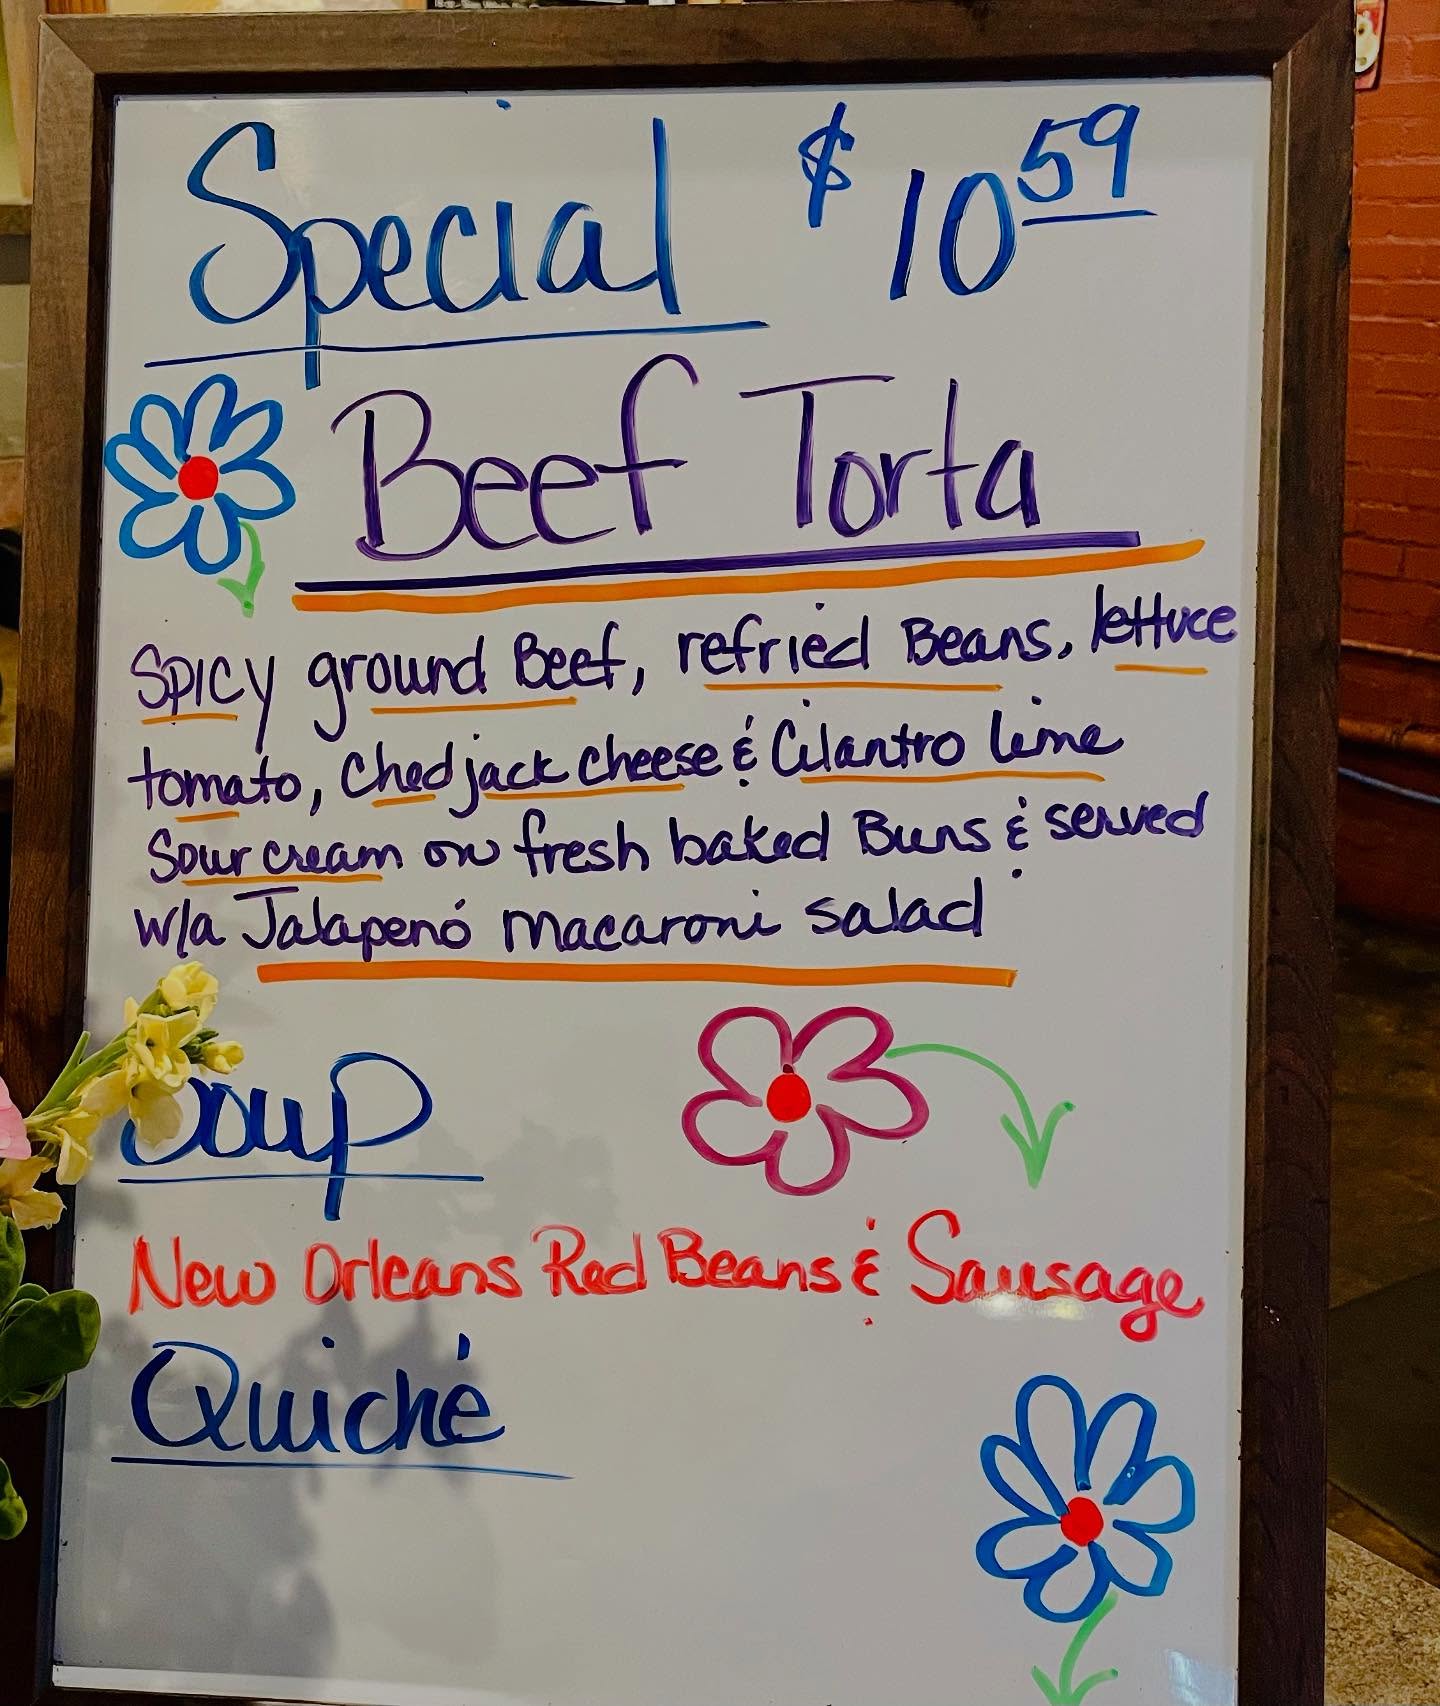 Special $10.59
Beef Torta
Spicy ground Beef, refried Beans, lettuce
tomato, Ched jack cheese & Cilantro lime
Sour cream on fresh baked Buns & served
w/a Jalapenó macaroni salad
Soup
New Orleans Red Beans & Sausage
Quiché